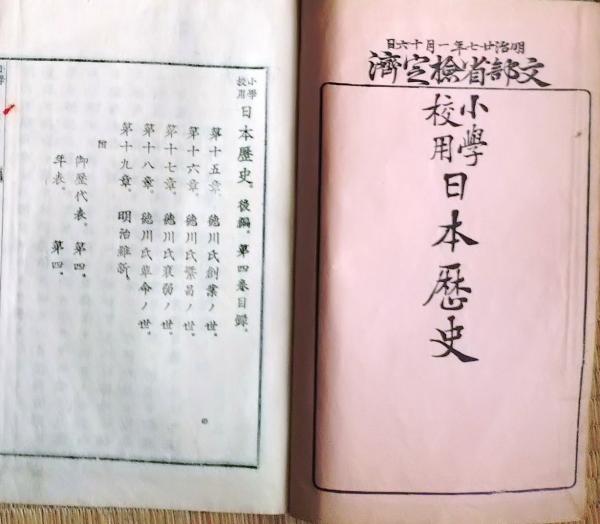 明治廿七年一月十六日
文部省檢定濟
小學校用日本歷史
小學校用日本歷史。後編。第四卷目錄。
第十五章。德川氏創業ノ世。
第十六章。德川氏繁昌ノ世。
第十七章。德川氏衰弱ノ世。
第十八章。德川氏革命ノ世。
第十九章。明治維新。
附
御歷代表。第四。
年表。第四。